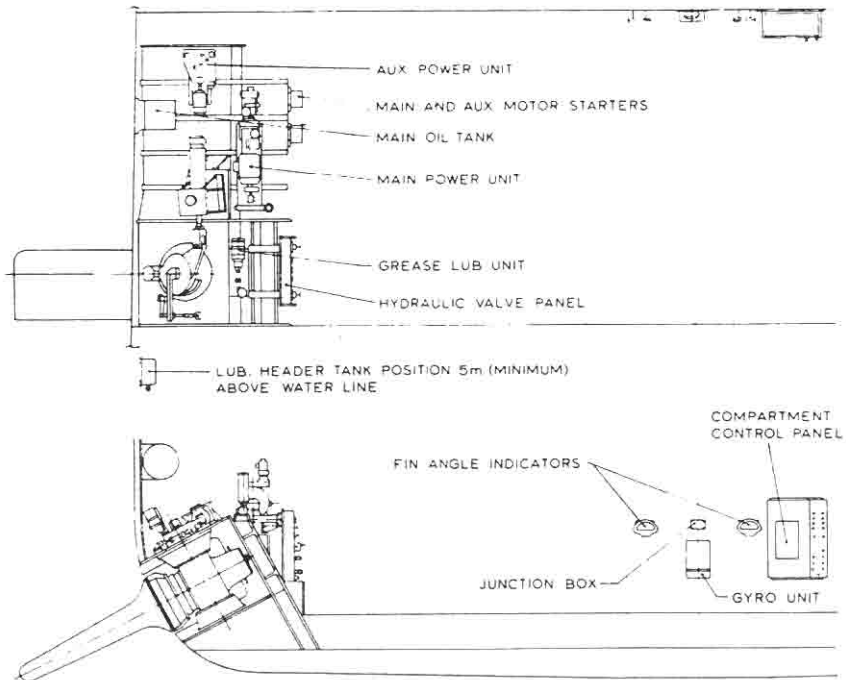 AUX POWER UNIT
MAIN AND AUX MOTOR STARTERS
MAIN OIL TANK
MAIN POWER UNIT
GREASE LUB UNIT
HYDRAULIC VALVE PANEL
LUB. HEADER TANK POSITION 5m (MINIMUM)
ABOVE WATER LINE
COMPARTMENT
CONTROL PANEL
FIN ANGLE INDICATORS
JUNCTION BOX
GYRO UNIT